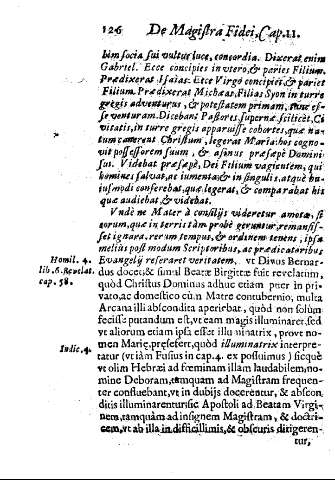 126 De Magistra Fidei, Cap. 11.
bim socia sui vultus luce, concordia. Dixerat enim
Gabriel. Ecce concipies in vtero, & paries Filium.
Prædixerat Isaias. Ecce Virgo concipiet, & pariet
Filium. Prædixerat Michæas, Filias Syon in turre
gregis adventurus, & potestatem primam, tunc es-
se venturam. Dicebant Pastores supernæ scilicèt, Ci-
vitatis, in turre gregis apparuisse cohortes, quæ na-
tum canerent Christum, legerat Maria: bos cogno-
vit possessorem suum, & asinus præsæpè Domini
sui. Videbat præsæpè, Dei Filium vagientem, qui
homines salvat, ac iumenta; & in singulis, atquè hu-
iusmodi conferebat, quæ legerat, & comparabat his
quæ audiebat, & videbat.
Vndè ne Mater à consilijs videretur amota, si
eorum, quæ in terris tàm probè geruntur, remansis-
set ignara, rerum tempus, & ordinem tenens, ipsa
melius post modum Scriptoribus, ac prædicatoribus
Homil. 4. Evangelij reseraret veritatem. vt Divus Bernar-
lib. 6. Revelat. dus docet; & simul Beatæ Birgittæ fuit revelatum,
cap. 58. quòd Christus Dominus adhuc etiam puer in pri-
vato, ac domestico cùm Matre contubernio, multa
Arcana illi abscondita aperibat, quòd non solùm
fecisse putandum est, vt eam magis illuminaret, sed
vt aliorum etiam ipsa esset illuminatrix, prout no-
men Mariæ præsefert, quòd illuminatrix interpre-
Indic. 4. tatur (vt iàm Fusius in cap. 4. ex possuimus) sicquè
vt olim Hebræi ad fœminam illam laudabilem, no-
mine Deboram, tamquam ad Magistram frequen-
ter confluebant, vt in dubijs docerentur, & abscon-
ditis illuminarentur: sic Apostoli ad Beatam Virgi-
nem, tamquàm ad insignem Magistram, & doctri-
cem, vt ab illa in difficillimis, & obscuris dirigeren-
tur,